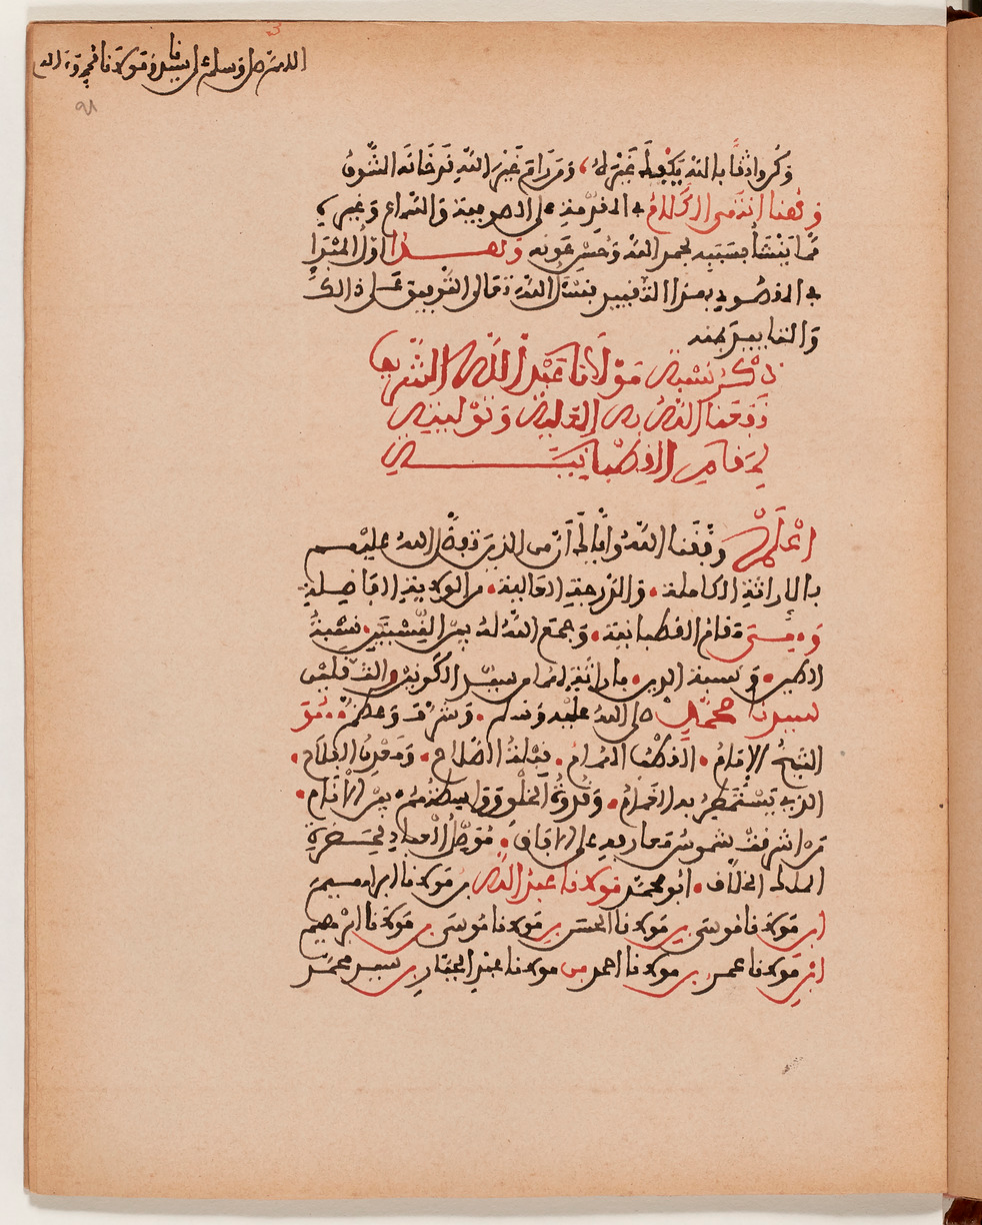 اللهم صل وسلم على سيدنا ومولانا محمد وءاله
٩٨
وكن واثقا بالله يكفله غيره ومن رام غير الله قد خانه الشوق
وهنا انتهى الكلام في المقدمة على الصوفية والسماع وغيره
مما ينشأ بسببه بحمد الله وحسن عونه وهذا اول المبدا
في المقصود بهذا التقييد نسئل الله تعالى التوفيق على ذالك
والتاييد بمنه
ذكر نسبة مولانا عبد الله الشريف
نفعنا الله به العلية وتوليته
لمقام القطبانية
اعلم وفقنا الله واياك أن من الذين تفضل الله عليهم
بالوراثة الكاملة والدرجة العالية من الولاية الفاضلة
ومقام القطبانية وجمع الله له بين النسبتين نسبة
الطين ونسبة الدين بوراثته لمقام سيد الكونين والثقلين
سيدنا محمد صلى الله عليه وسلم وشرف وعظم هو
الشيخ الإمام القطب الهمام قبلة الصلاح ومعدن الفلاح
الذي يستمطر به الغمام وقدوة الخلق وواسطتهم بين الأنام
من اشرقت شموس معارفه على الآفاق موصل العباد لحضرة
الملك الخلاق أبو محمد مولانا عبد الله بن مولانا ابراهيم
ابن مولانا موسى بن مولانا الحسن بن مولانا موسى بن مولانا ابرهيم
ابن مولانا عمر بن مولانا احمد بن مولانا عبد الجبار بن سيد محمد